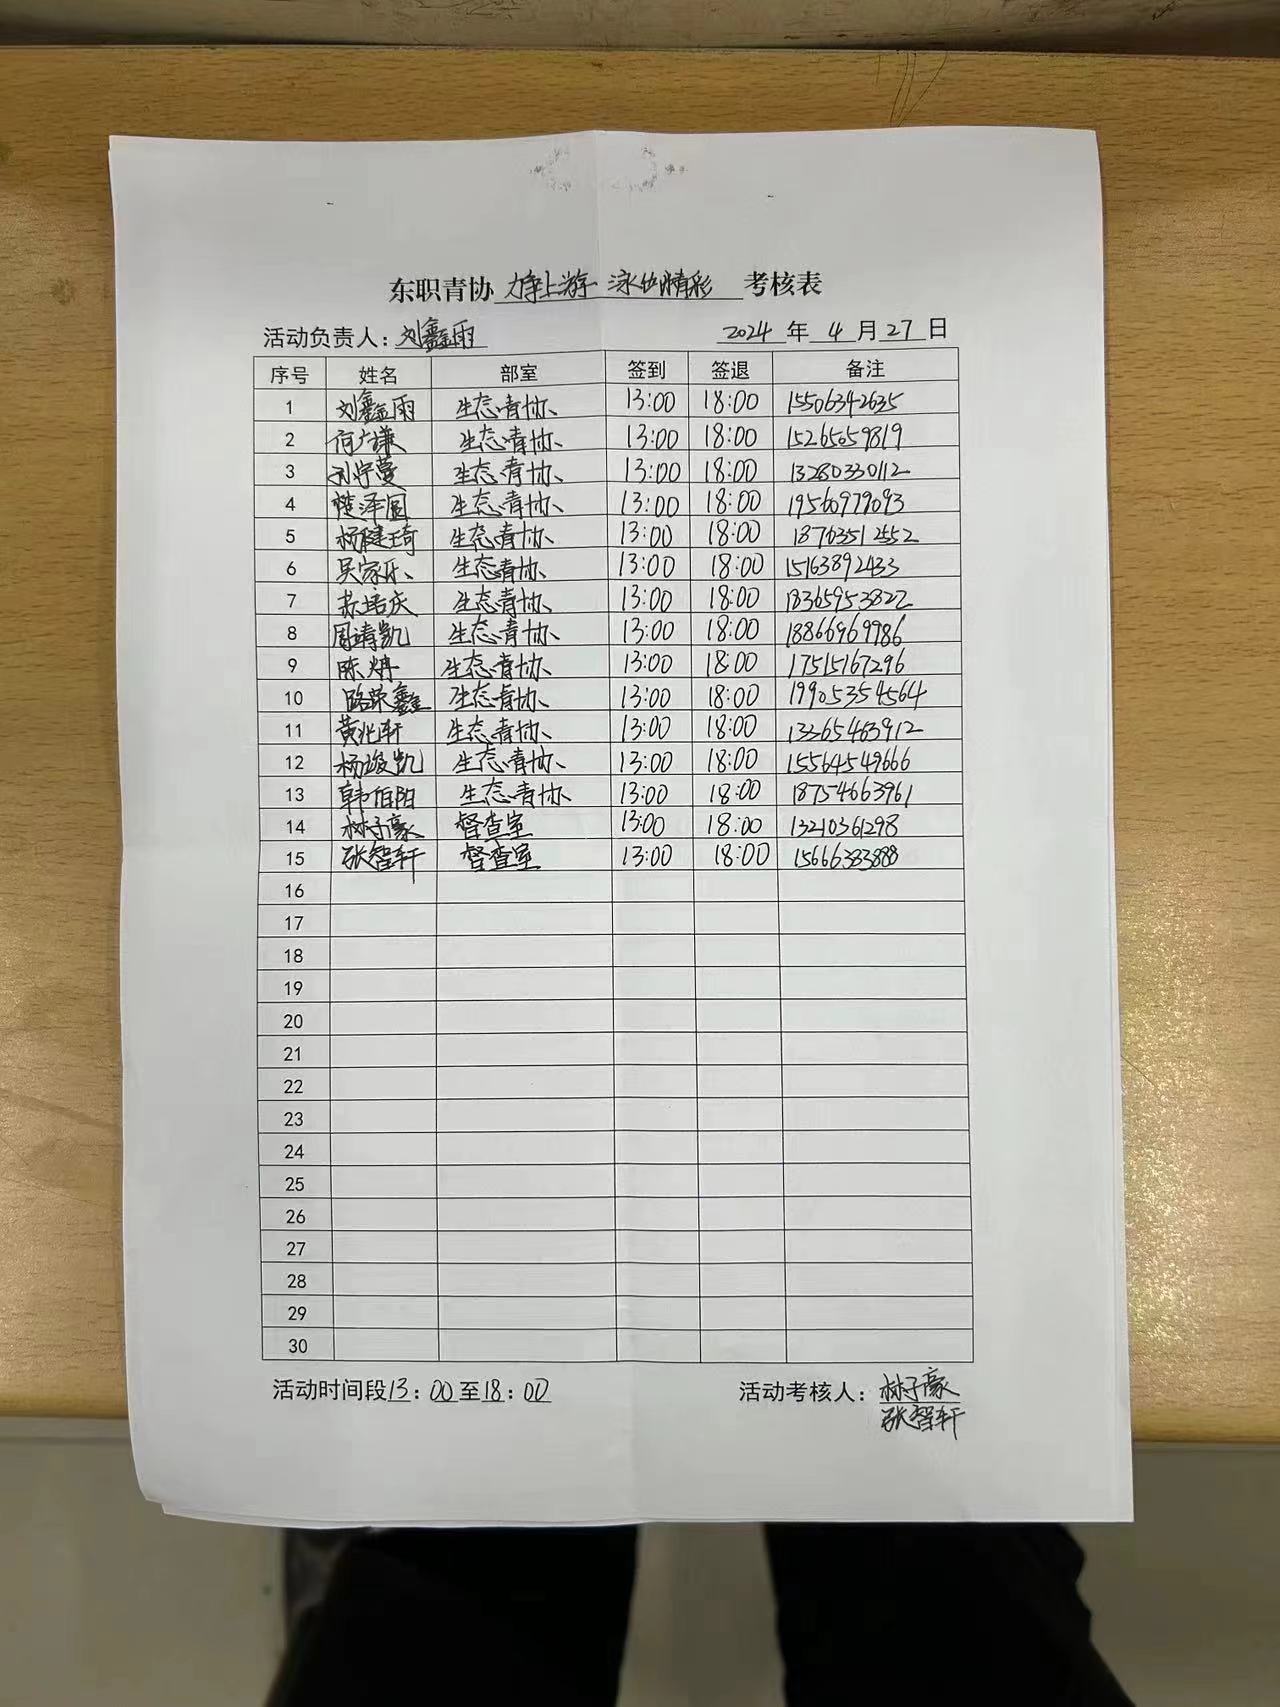 东职青协 力争上游 泳出精彩 考核表
活动负责人：刘鑫雨 2024 年 4 月 27 日
序号 姓名 部室 签到 签退 备注
1 刘鑫雨 生态青协 13:00 18:00 15506342635
2 生态青协 13:00 18:00 15265059819
3 刘宇蔓 生态青协 13:00 18:00 13280330112
4 楚泽圆 生态青协 13:00 18:00 19560979093
5 杨健琦 生态青协 13:00 18:00 18763512552
6 吴家乐 生态青协 13:00 18:00 15163892433
7 生态青协 13:00 18:00 18365953822
8 周靖凯 生态青协 13:00 18:00 18866969986
9 陈冉 生态青协 13:00 18:00 17515167296
10 路荣鑫 生态青协 13:00 18:00 19905354564
11 黄兆轩 生态青协 13:00 18:00 13365463912
12 杨竣凯 生态青协 13:00 18:00 15564549666
13 韩佰阳 生态青协 13:00 18:00 18754663961
14 林子豪 督查室 13:00 18:00 13210361298
15 张智轩 督查室 13:00 18:00 15666383888
16
17
18
19
20
21
22
23
24
25
26
27
28
29
30
活动时间段13：00至18：00 活动考核人：林子豪
张智轩